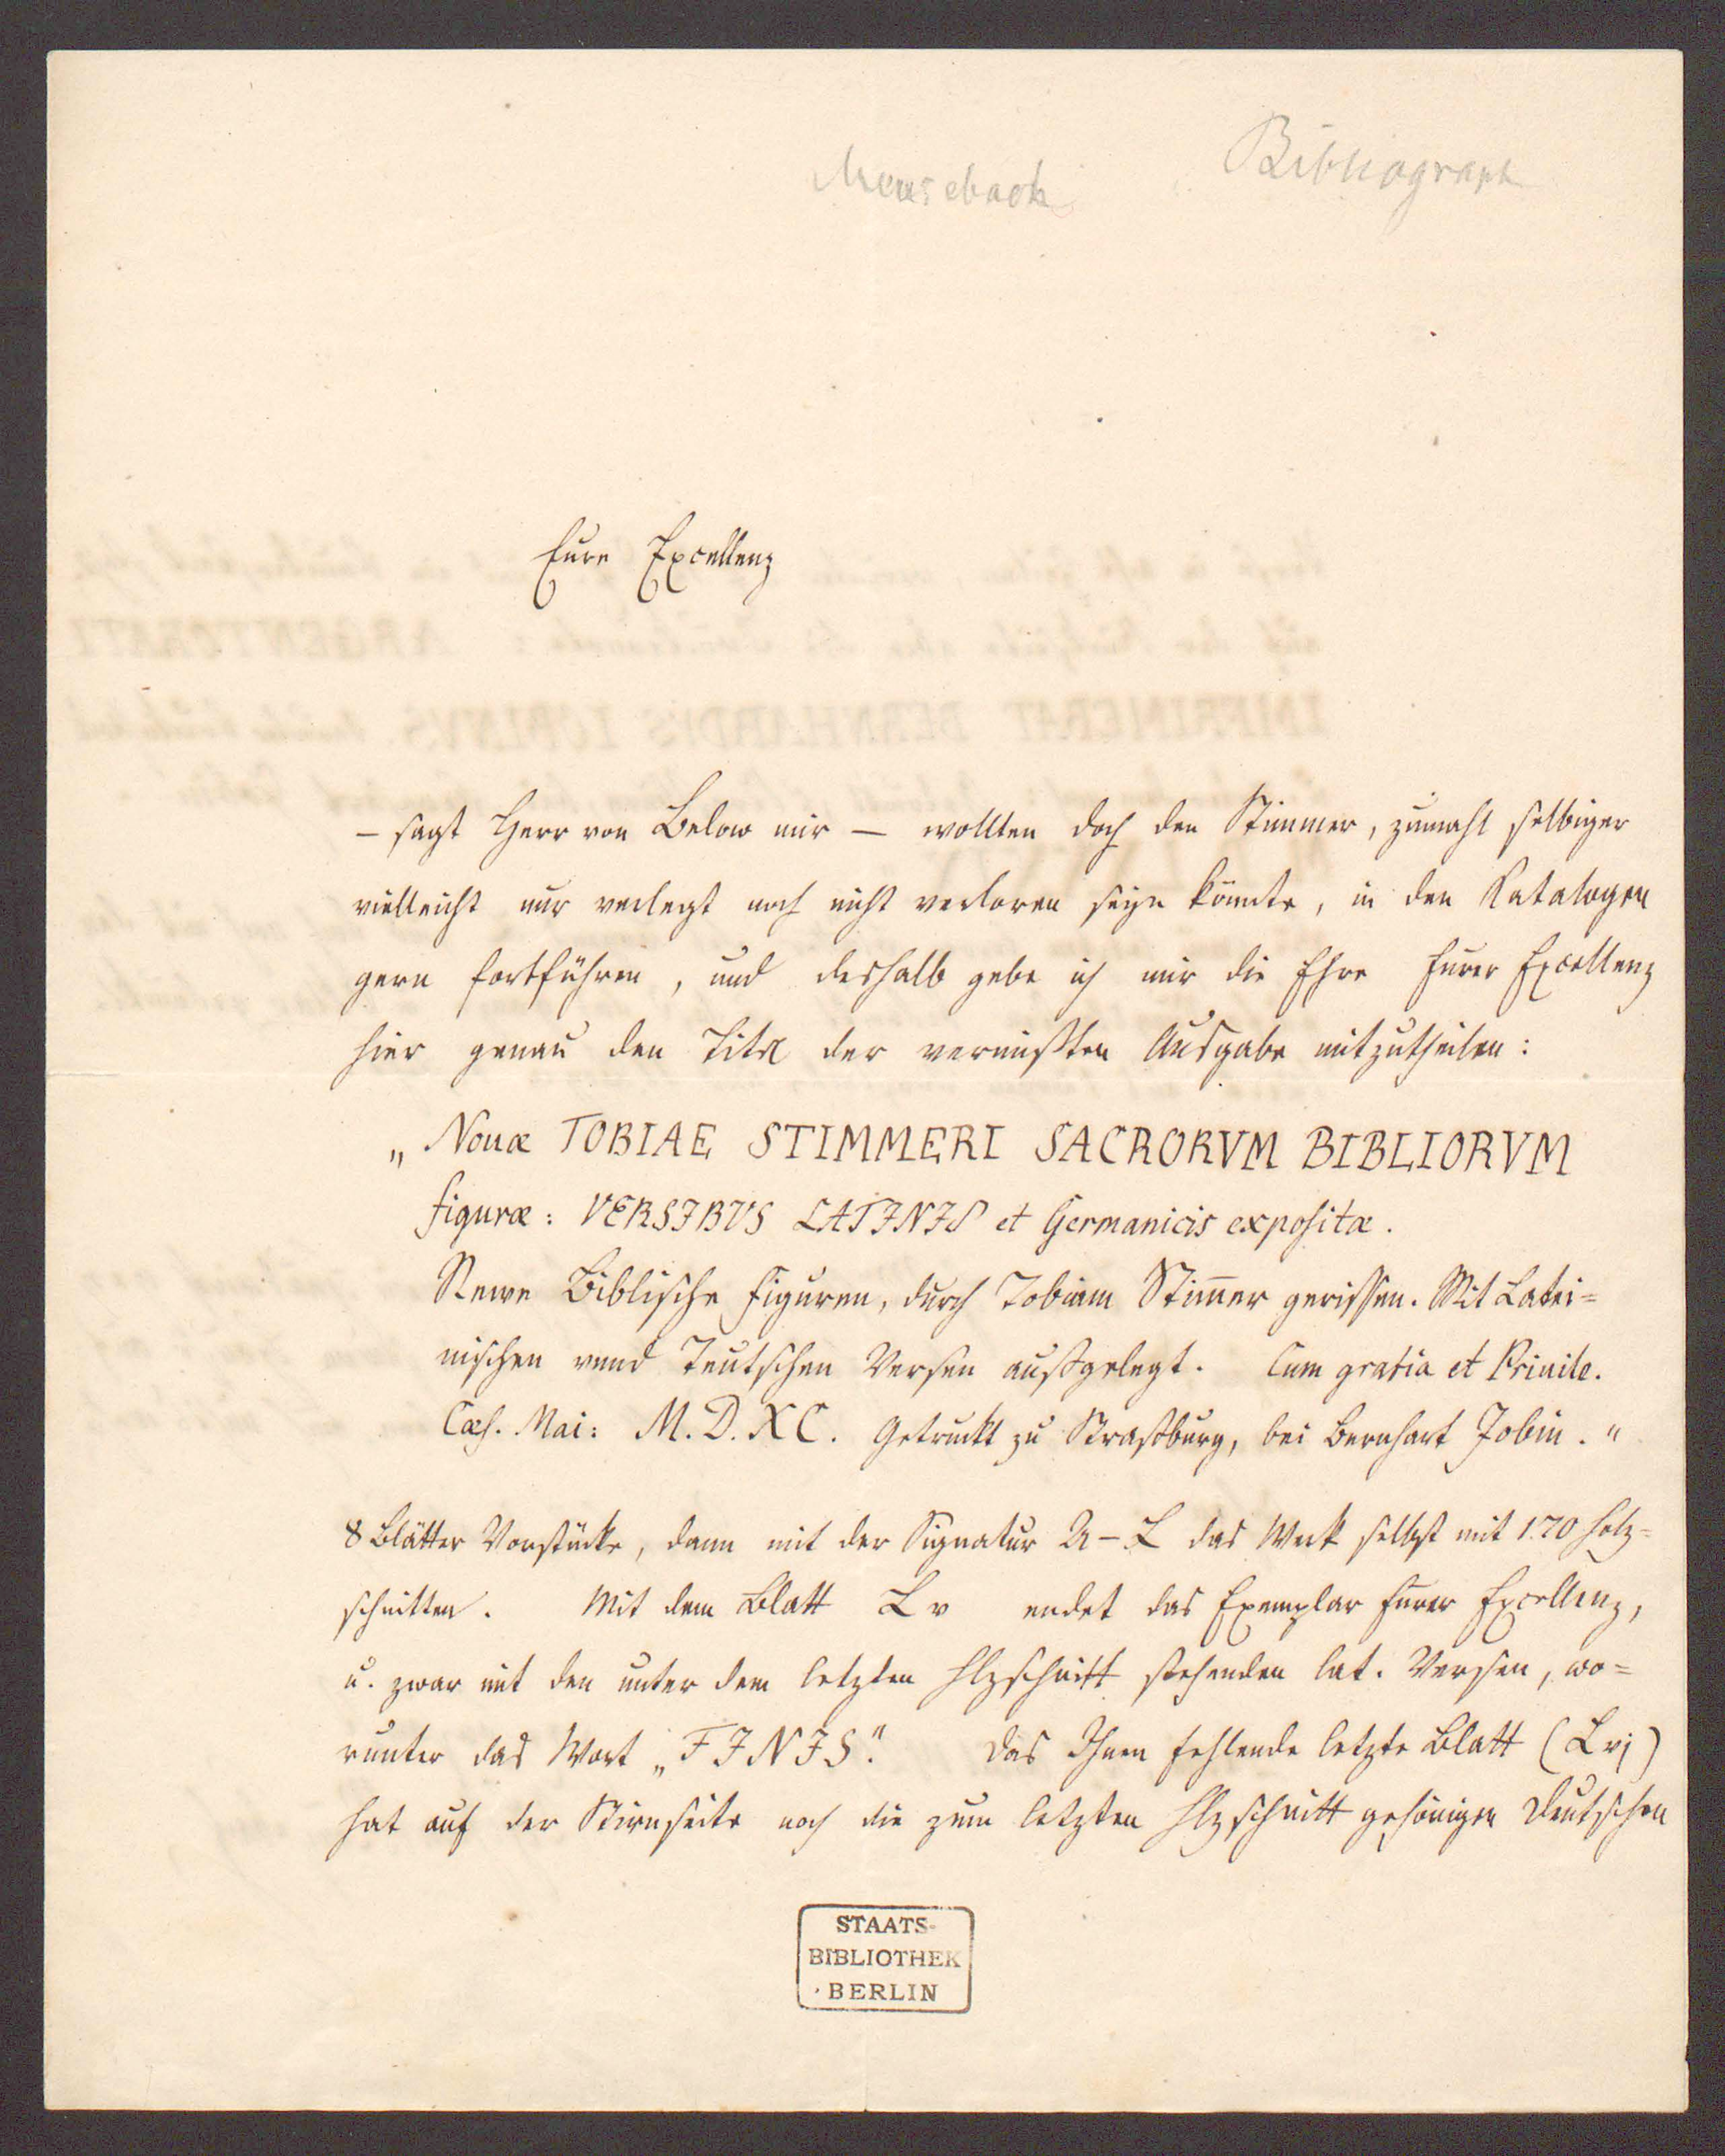 Meusebach
Bibliograph
Eure Excellenz
– sagt Herr von Below mir – wollten doch den Stimmer, zumahl selbiger
vielleicht nur verlegt noch nicht verloren seyn könnte, in den Katalogen
gern fortführen, und deshalb gebe ich mir die Ehre Eurer Excellenz
hier genau den Titel der vermißten Ausgabe mitzutheilen:
„Nouæ TOBIAE STIMMERI SACRORVM BIBLIORVM
figuræ: VERSIBVS LATINIS et Germanicis expositæ.
Newe Biblische Figuren, durch Tobiam Stim̄er gerissen. Mit Latei=
nischen vnnd Teutschen Versen außgelegt. Cum gratia et Priuile.
Cæs. Mai: M.D.XC. Getruckt zu Straßburg, bei Bernhart Jobin."
8 Blätter Vorstücke, dann mit der Signatur A–L das Werk selbst mit 170 Holz=
schnitten. Mit dem Blatt L v endet das Exemplar Eurer Excellenz,
u. zwar mit den unter dem letzten Hlzschnitt stehenden lat. Versen, wo=
runter das Wort „FINIS". Das Ihnen fehlende letzte Blatt (L vj)
hat auf der Stirnseite noch die zum letzten Hlzschnitt gehörigen Deutschen
STAATS-
BIBLIOTHEK
BERLIN